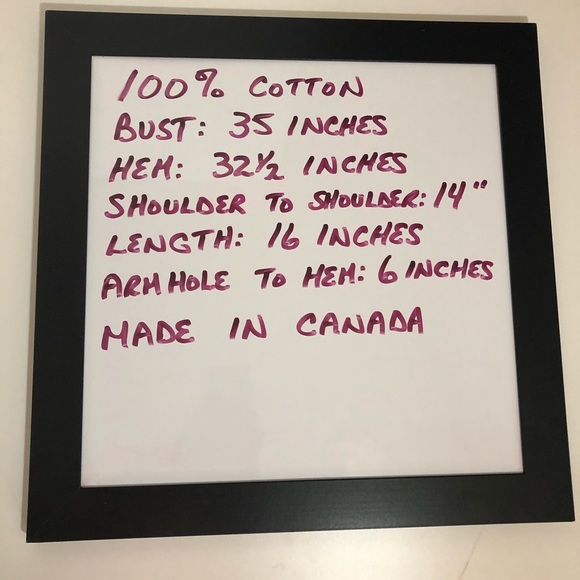 100% COTTON
BUST: 35 INCHES
HEM: 32½ INCHES
SHOULDER TO SHOULDER: 14"
LENGTH: 16 INCHES
ARMHOLE TO HEM: 6 INCHES
MADE IN CANADA